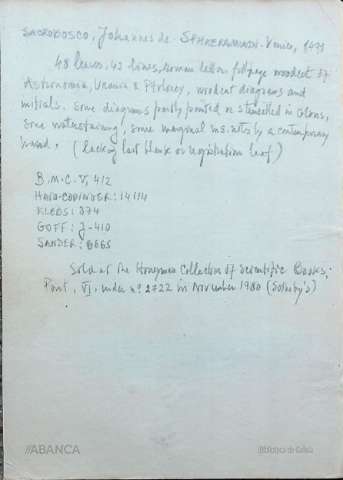 SACROBOSCO, Johannes de - SPHAERA MUNDI - Venice, 14
48 leaves, 42 lines, Roman letter, full page woodcut of
Astronomia, Urania & Ptolemy, woodcut diagrams and
initials. Some diagrams partly printed or stencilled in colours,
some waterstaining, some marginal ms. notes by a contemporary
hand. (lacking last blank or registration leaf)
B.M.C. V, 412
HAIN-COPINGER: 14114
KLEBS: 874
GOFF: J-410
SANDER: 6665
Sold at the Honeyman Collection of Scientific Books,
Part. VI, under nº 2722 in November 1980 (Sotheby's)
//ABANCA
Biblioteca de Galicia